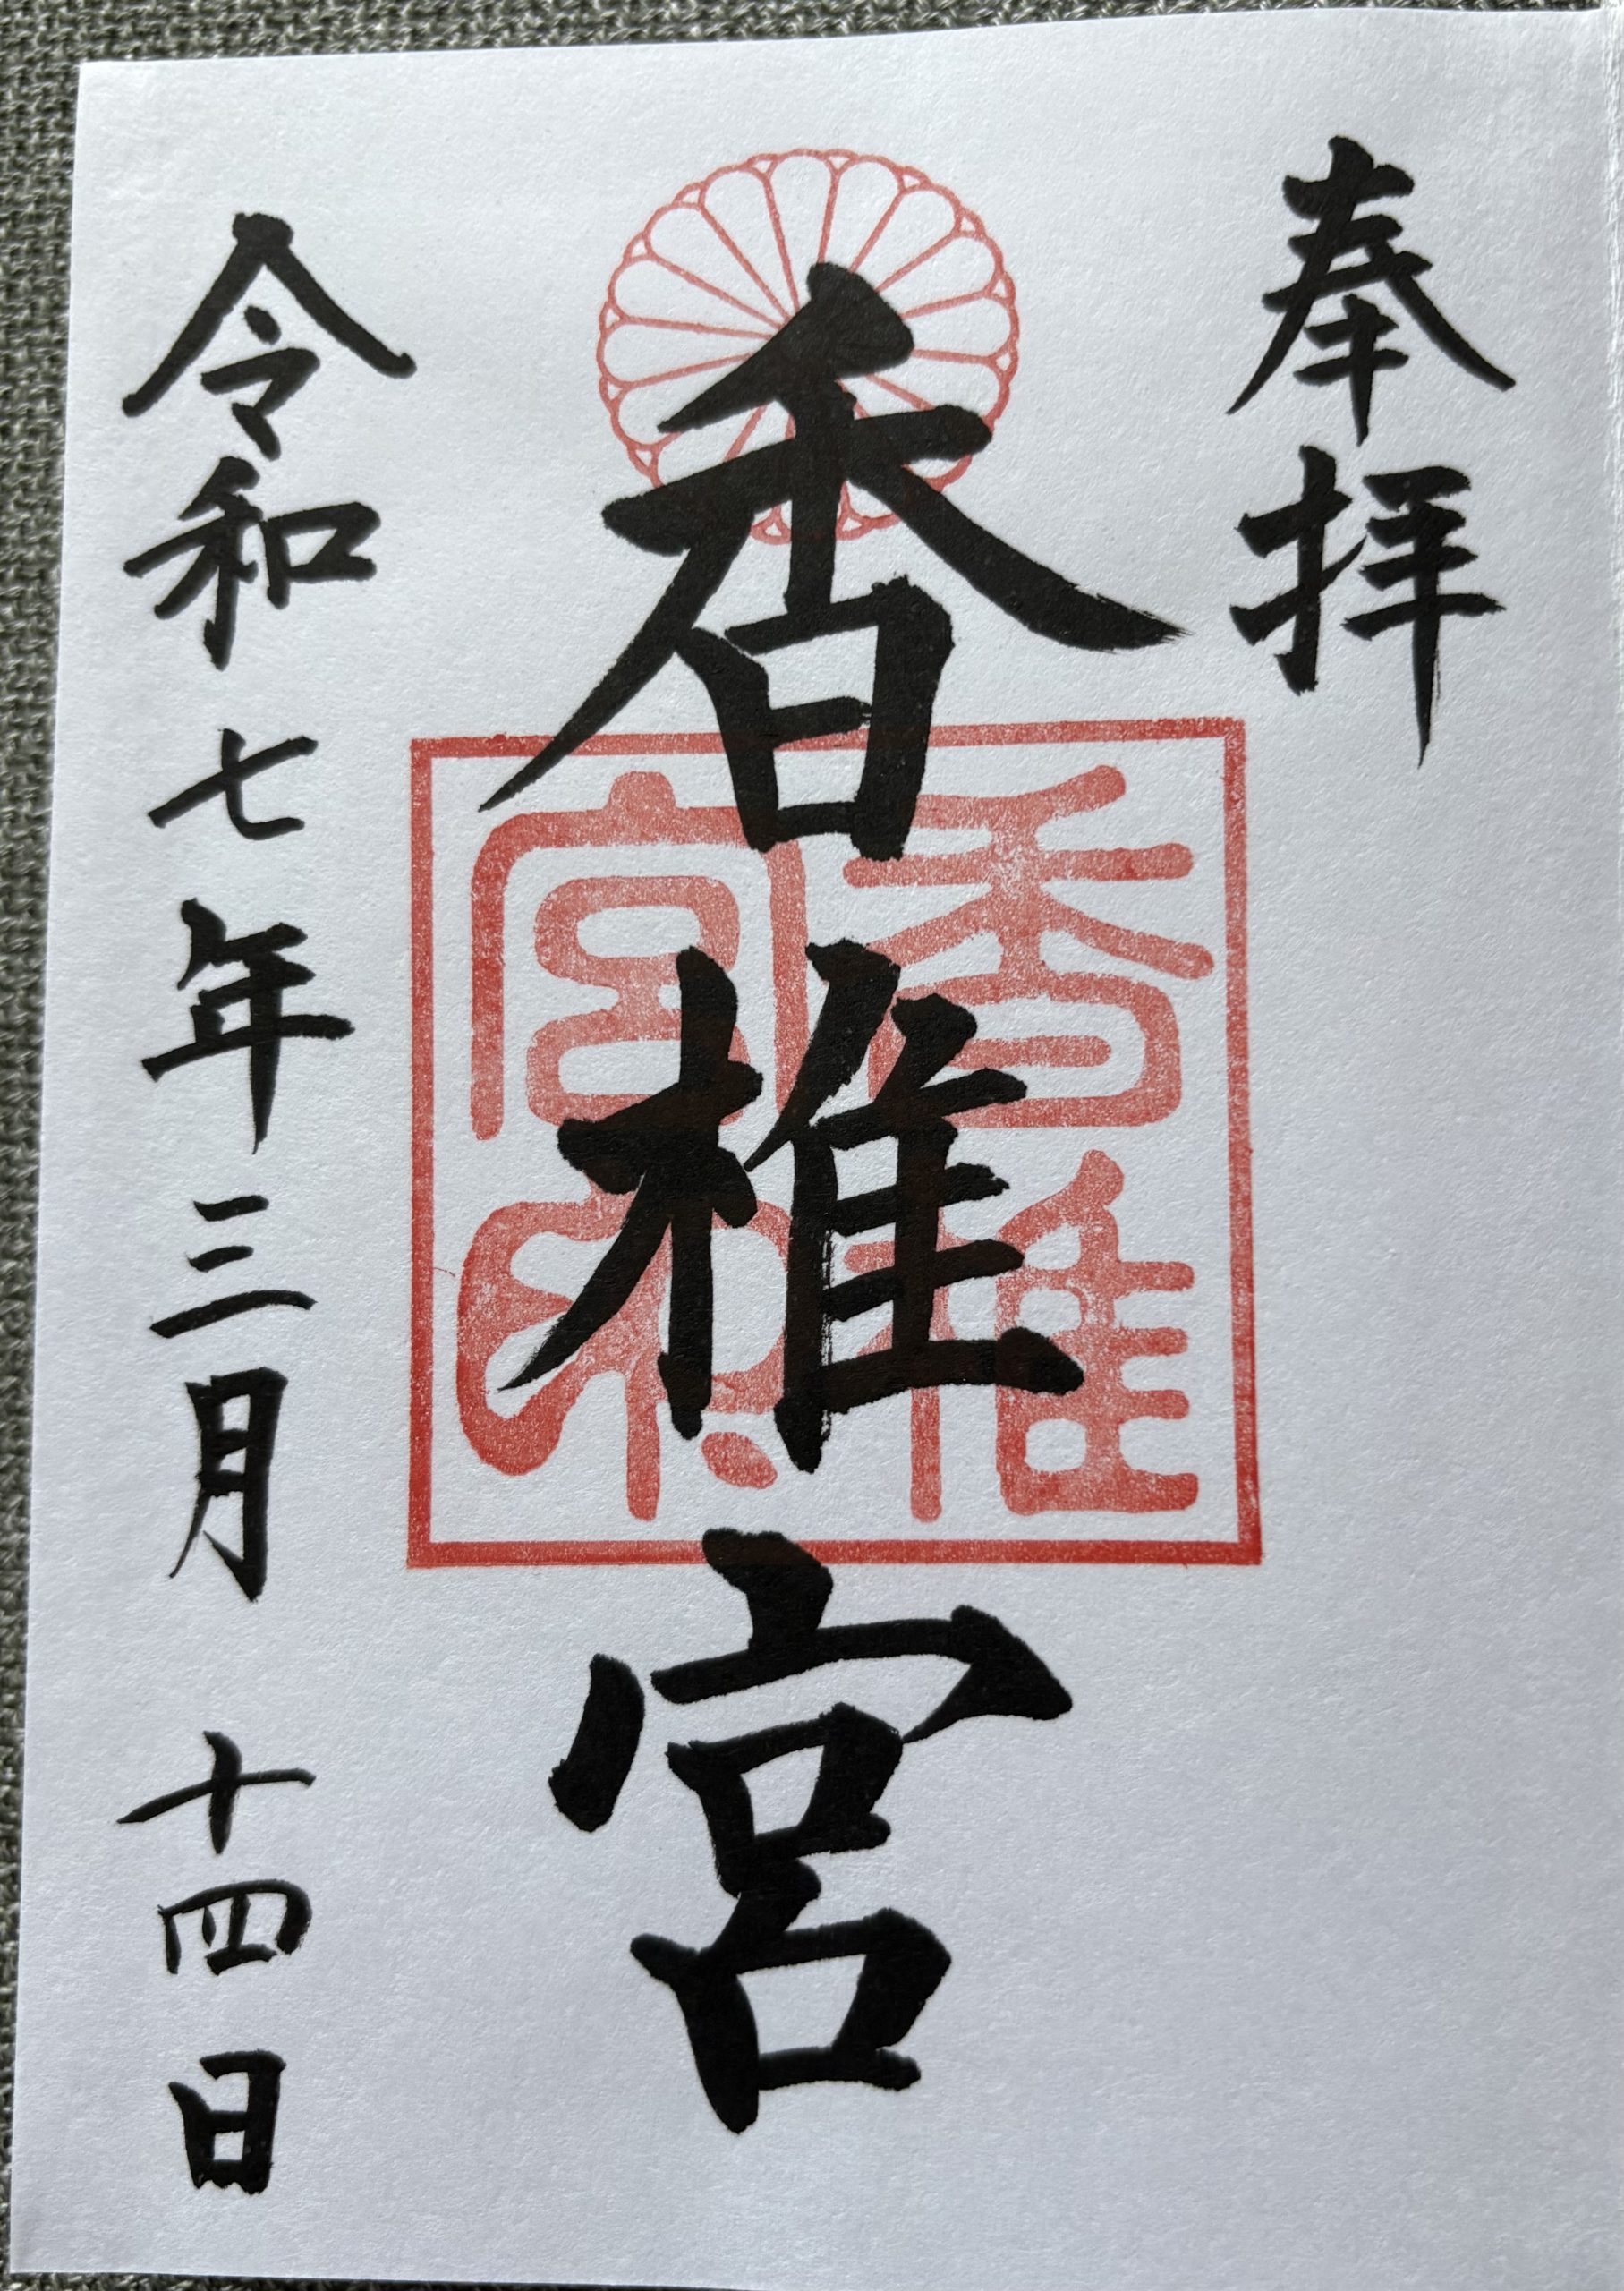 奉拝
香椎宮
香椎宮印
令和七年三月十四日